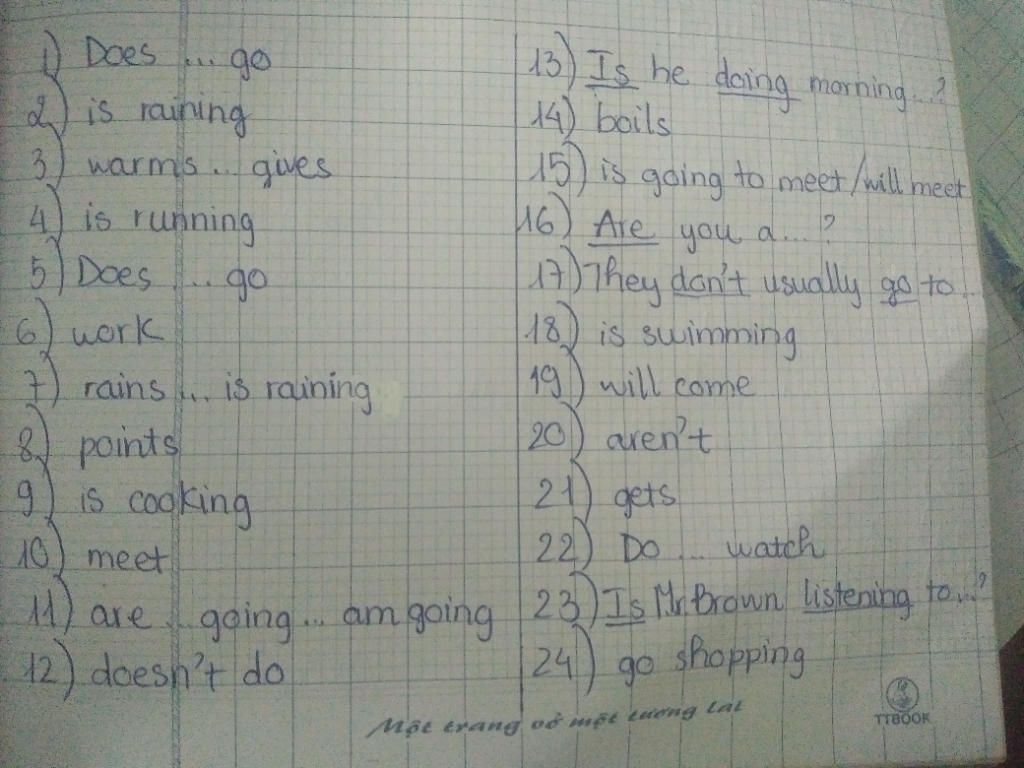 1) Does ... go
2) is raining
3) warms ... gives
4) is running
5) Does ... go
6) work
7) rains ... is raining
8) points
9) is cooking
10) meet
11) are ... going ... am going
12) doesn't do
13) Is he doing morning...?
14) boils
15) is going to meet/will meet
16) Are you a...?
17) They don't usually go to...
18) is swimming
19) will come
20) aren't
21) gets
22) Do ... watch
23) Is Mr. Brown listening to...?
24) go shopping
Một trang vở một tương lai
TTBOOK